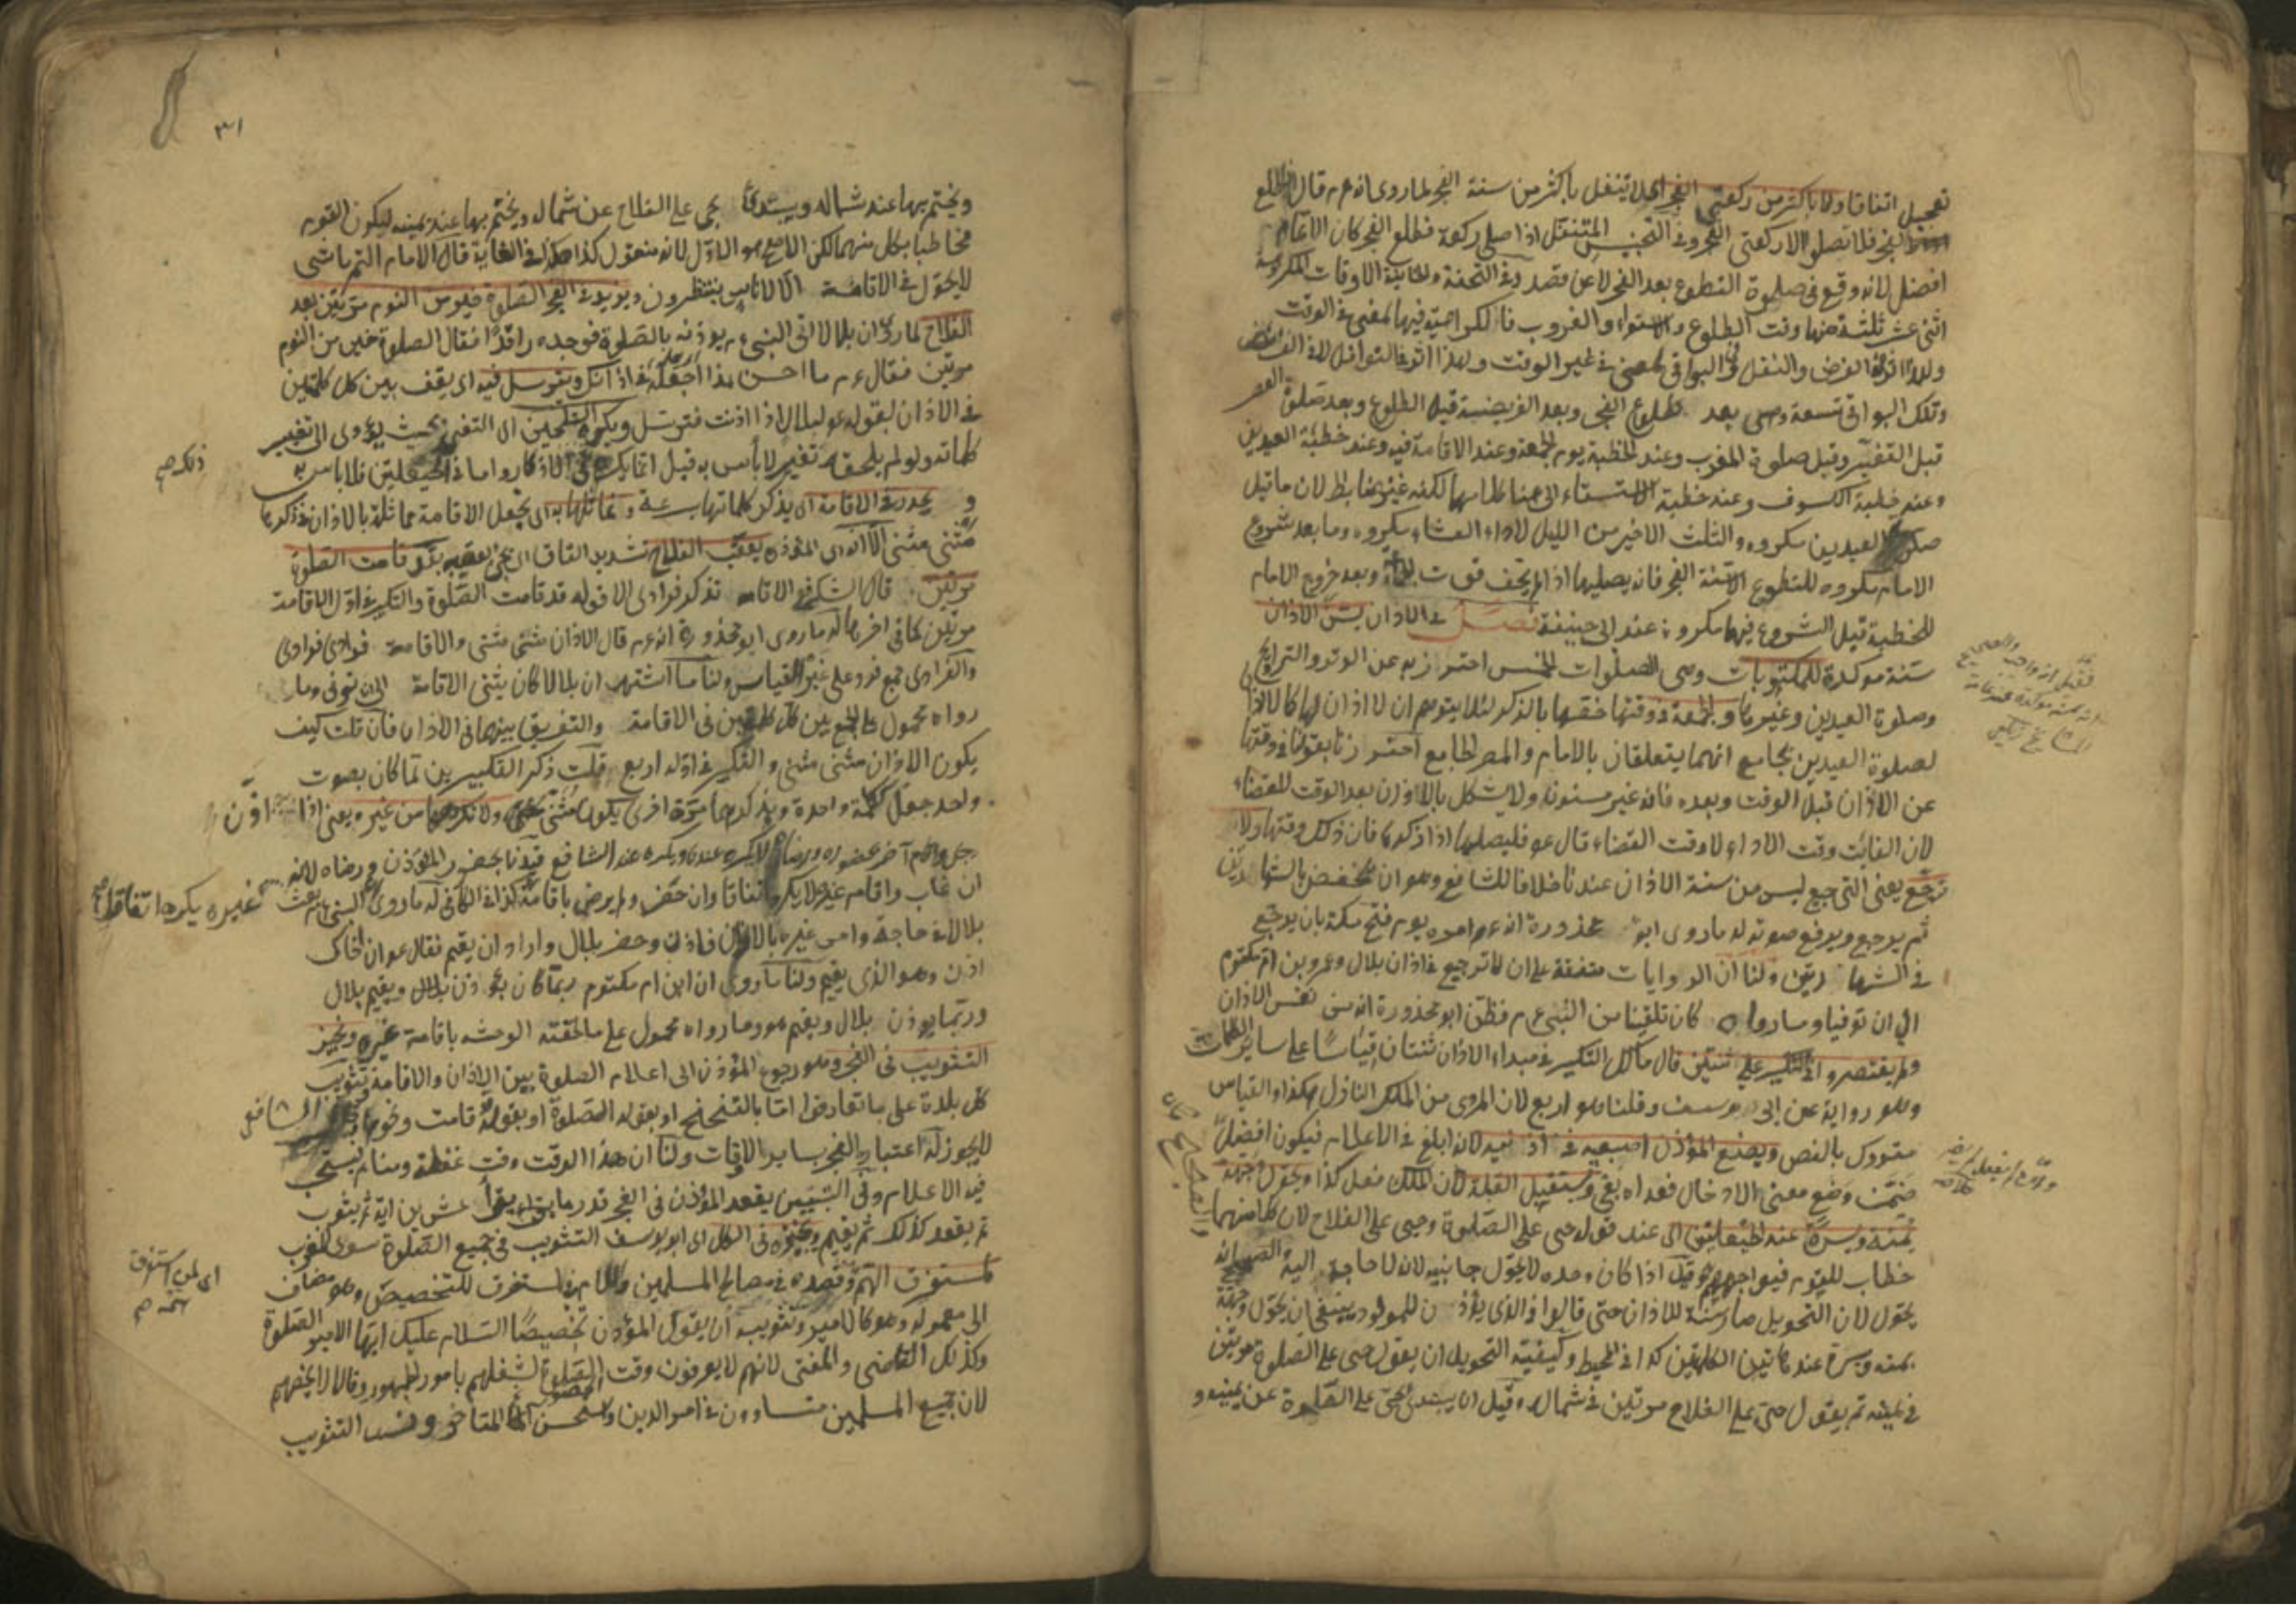 تعجيل اتفاقا ولا باكثر من ركعتي الفجر اى لا يتنفل باكثر من سنة الفجر لما روى انه عم قال اذا طلع
الفجر فلا تصلوا الا ركعتى الفجر وفى التجنيس المتنفل اذا صلى ركعة فطلع الفجر كان الاتمام
افضل لانه وقع فى صلوة التطوع بعد الفجر لا عن قصد وفى التحفة الاوقات المكروهة
اثنى عشر ثلثة منها وقت الطلوع والاستواء والغروب فالكراهية فيها لمعنى فى الوقت
ولهذا الفرض والنفل وفى البواقى لمعنى فى غير الوقت ولهذا اثر فى النوافل لا فى الفرائض
وتلك البواقى تسعة وهى بعد طلوع الفجر وبعد الفريضة قبل الطلوع وبعد صلوة العصر
قبل التغير وقبل صلوة المغرب وعند الخطبة يوم الجمعة وعند الاقامة فيه وعند خطبة العيدين
وعند خطبة الكسوف وعند خطبة الاستسقاء الى هنا كلامها لكنه غير ضابط لان ما قبل
صلوة العيدين مكروه والثلث الاخير من الليل لاداء العشاء مكروه وما بعد شروع
الامام مكروه للتطوع الا سنة الفجر فانه يصليها اذا لم يخف فوت وبعد خروج الامام
للخطبة قبل الشروع فيها مكروه عند ابى حنيفة فصل فى الاذان يسن الاذان
سنة موكدة للمكتوبات وهى الصلوات الخمس احترز به عن الوتر والتراويح
وصلوة العيدين وغيرها والجمعة فى وقتها خصها بالذكر لئلا يتوهم ان لا اذان لها كما لا اذان
لصلوة العيدين بجامع انهما يتعلقان بالامام والمصر الجامع احترزنا بقولنا فى وقتها
عن الاذان قبل الوقت وبعده فانه غير مسنون ولا يشكل بالاذان بعد الوقت للقضاء
لان الفايت وقت الاداء لا وقت القضاء قال عم فليصلها اذا ذكرها فان ذلك وقتها ولا
ترجع يعنى الترجيع ليس من سنة الاذان عندنا خلافا للشافعى وهو ان يخفض بالشهادتين
ثم يرجع ويرفع صوته له ما روى ابو محذورة انه عم امره يوم فتح مكة بان يرجع
فى الشهادتين ولنا ان الروايات متفقة على ان لا ترجيع فى اذان بلال وعمرو بن ام مكتوم
الى ان توفيا وما رواه كان تلقينا من النبى عم فظن ابو محذورة انه من نفس الاذان
ولم يقتصروا التكبير على ثنتين قال مالك التكبير فى مبداء الاذان ثنتان قياسا على ساير الكلمات
وهو رواية عن ابى يوسف وقلنا هو اربع لان المروى من الملك النازل هكذا والقياس
متروك بالنص ويضع المؤذن اصبعيه فى اذنيه لانه ابلغ فى الاعلام فيكون افضل
ضمن وضع معنى الادخال فعداه بفى ويستقبل القبلة لان الملك فعل كذا ويحول وجهه
يمنة ويسرة عند الحيعلتين اى عند قوله حى على الصلوة وحى على الفلاح لان كلا منهما
خطاب للقوم فيواجههم وقيل اذا كان وحده لا يحول جانبيه لانه لا حاجة اليه والصحيح انه
يحول لان التحويل صار سنة للاذان حتى قالوا فى الذى يؤذن للمولود ينبغى ان يحول وجهه
يمنة ويسرة عند هاتين الكلمتين كذا فى المحيط وكيفية التحويل ان يقول حى على الصلوة مرتين
فى يمينه ثم يقول حى على الفلاح مرتين فى شماله وقيل ان يبتدئ بحى على الصلوة عن يمينه و
٣١
ويختم بها عند شماله ويبتدئ بحى على الفلاح عن شماله ويختم بها عند يمينه ليكون القوم
مخاطبا بكل منهما لكن الاصح هو الاول لانه منقول كذا فى الغاية قال الامام التمرتاشى
لا يحول فى الاقامة الا لاناس ينتظرون ويزيد فى الفجر الصلوة خير من النوم مرتين بعد
الفلاح لما روى ان بلالا اتى النبى عم يوذنه بالصلوة فوجده راقدا فقال الصلوة خير من النوم
مرتين فقال عم ما احسن هذا اجعله فى اذانك ويترسل فيه اى يقف بين كل كلمتين
فى الاذان لقوله عم لبلال اذا اذنت فترسل ويكره التلحين اى التغنى بحيث يؤدى الى تغيير
كلماته ولو لم يلحقه تغيير لا بأس به قيل انما يكره فى الاذكار واما فى الحيعلتين فلا باس به
و يحدر فى الاقامة اى يذكر كلماتها بسرعة وتماثلها به اى تجعل الاقامة مماثلة بالاذان فذكرها
مثنى مثنى الا انه اى المؤذن يعقب الفلاح بتشديد القاف اى بقد قامت الصلوة
مرتين قال الشافعى الاقامة تذكر فرادى الا قوله قد قامت الصلوة والتكبير فى اول الاقامة
مرتين كما فى اخرها له ما روى ابو محذورة انه عم قال الاذان مثنى مثنى والاقامة فرادى فرادى
والفرادى جمع فرد على غير القياس ولنا ما اشتهر ان بلالا كان يثنى الاقامة الى ان توفى وما
رواه محمول على الجمع بين كل كلمتين فى الاقامة والتفريق بينهما فى الاذان فان قلت كيف
يكون الاذان مثنى مثنى والتكبير فى اوله اربع قلت ذكر التكبيرين لما كان بصوت
واحد جعل كلمة واحدة وبذكرهما مرة اخرى يكون مثنى ولا نكرهها من غيره يعنى اذا اذن
رجل واقام آخر بحضوره ورضاه لا يكره عندنا ويكره عند الشافعى قيدنا بحضور المؤذن ورضاه لانه
ان غاب واقام غيره لا يكره اتفاقا وان حضر ولم يرض باقامة غيره يكره اتفاقا كذا فى الكافى له ما روى ان النبى عم بعث
بلالا فى حاجة وامر غيره بالاذان فاذن وحضر بلال واراد ان يقيم فقال عم ان اخاك
اذن وهو الذى يقيم ولنا ما روى ان ابن ام مكتوم ربما كان يؤذن بلال ويقيم بلال
وربما يوذن بلال ويقيم هو وما رواه محمول على ما لحقته الوحشة باقامة غيره ونجيز
التثويب فى الفجر وهو رجوع المؤذن الى اعلام الصلوة بين الاذان والاقامة تثويب
كل بلدة على ما تعارفوا اما بالتنحنح او بقوله الصلوة او بقوله قامت ونحوها وقال الشافعى
لا يجوز له اعتبار الفجر بساير الاوقات ولنا ان هذا الوقت وقت غفلة ومنام فيستحب
فيه الاعلام وفى التبيين يقعد المؤذن فى الفجر قدر ما يقرأ عشرين اية ثم يثوب
ثم يقعد كذلك ثم يقيم ويجيزه فى الكل اى ابو يوسف التثويب فى جميع الصلوة سوى المغرب
لمستغرق الهم وقصده فى مصالح المسلمين واللام فى لمستغرق للتخصيص وهو مضاف
الى معموله وهو كالامير وتثويبه ان يقول المؤذن تخصيصا السلام عليك ايها الامير الصلوة
وكذلك القاضى والمفتى لانهم لا يعرفون وقت الصلوة لشغلهم بامور الجمهور وقالا لا يخصهم
لان جميع المسلمين متساوون فى امر الدين واستحسن المتاخرون التثويب